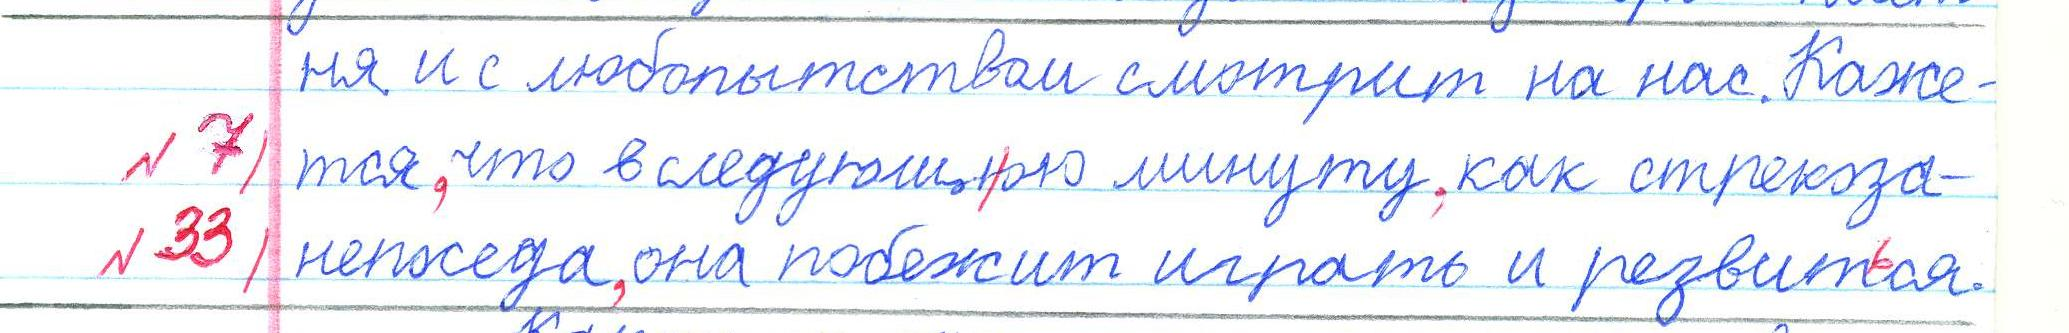 ня и с любопытством смотрит на нас. Каже-
№7) тся, что в следующую минуту, как стрекоза-
№33) непоседа, она побежит играть и резвиться.